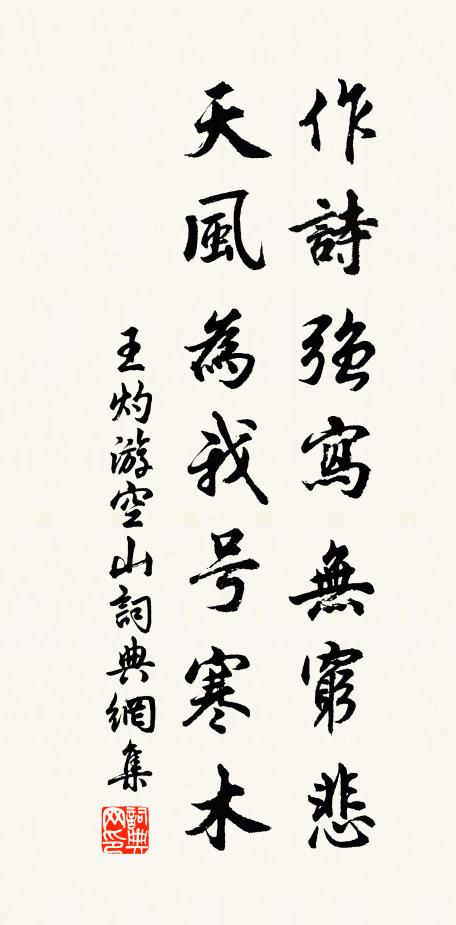 作詩強寫無窮悲
天風為我号寒木
王灼游空山詞典網集
詞典网印